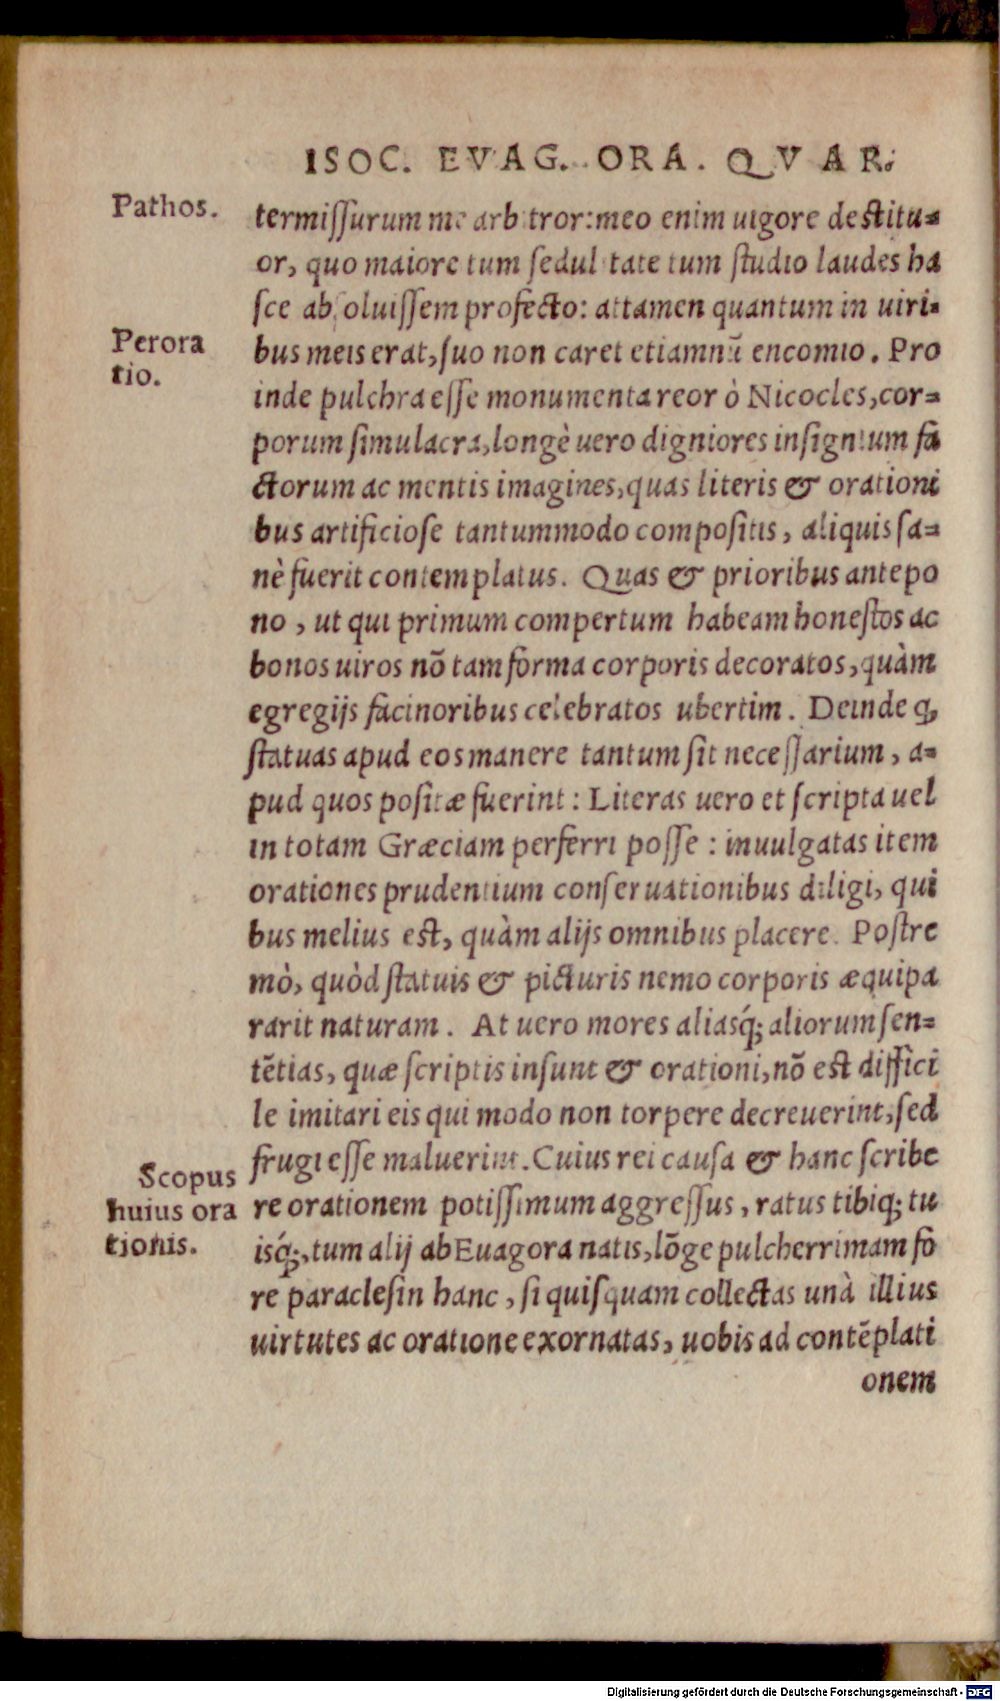 ISOC. EVAG. ORA. QVAR.
Pathos.
termiſſurum me arbitror: meo enim uigore deſtitu=
or, quo maiore tum ſedulitate tum ſtudio laudes ha
ſce abſoluiſſem profecto: attamen quantum in uiri=
Perora
tio.
bus meis erat, ſuo non caret etiamnū encomio. Pro
inde pulchra eſſe monumenta reor ò Nicocles, cor=
porum ſimulacra, longè uero digniores inſignium fa
ctorum ac mentis imagines, quas literis & orationi
bus artificioſe tantummodo compoſitis, aliquis ſa=
nè fuerit contemplatus. Quas & prioribus antepo
no, ut qui primum compertum habeam honeſtos ac
bonos uiros nō tam forma corporis decoratos, quàm
egregijs facinoribus celebratos ubertim. Deinde ꝙ
ſtatuas apud eos manere tantum ſit neceſſarium, a=
pud quos poſitæ fuerint: Literas uero et ſcripta uel
in totam Græciam perferri poſſe: inuulgatas item
orationes prudentium conſeruationibus diligi, qui
bus melius eſt, quàm alijs omnibus placere. Poſtre
mò, quòd ſtatuis & picturis nemo corporis æquipa
rarit naturam. At uero mores aliasq́; aliorum ſen=
tētias, quæ ſcriptis inſunt & orationi, nō eſt difficі
le imitari eis qui modo non torpere decreuerint, ſed
frugi eſſe maluerint. Cuius rei cauſa & hanc ſcribe
Scopus
huius ora
tionis.
re orationem potiſſimum aggreſſus, ratus tibiq; tu
isq́;, tum alij ab Euagora natis, lōge pulcherrimam fo
re paracleſin hanc, ſi quiſquam collectas unà illius
uirtutes ac oratione exornatas, uobis ad contēplati
onem
Digitalisierung gefördert durch die Deutsche Forschungsgemeinschaft - DFG